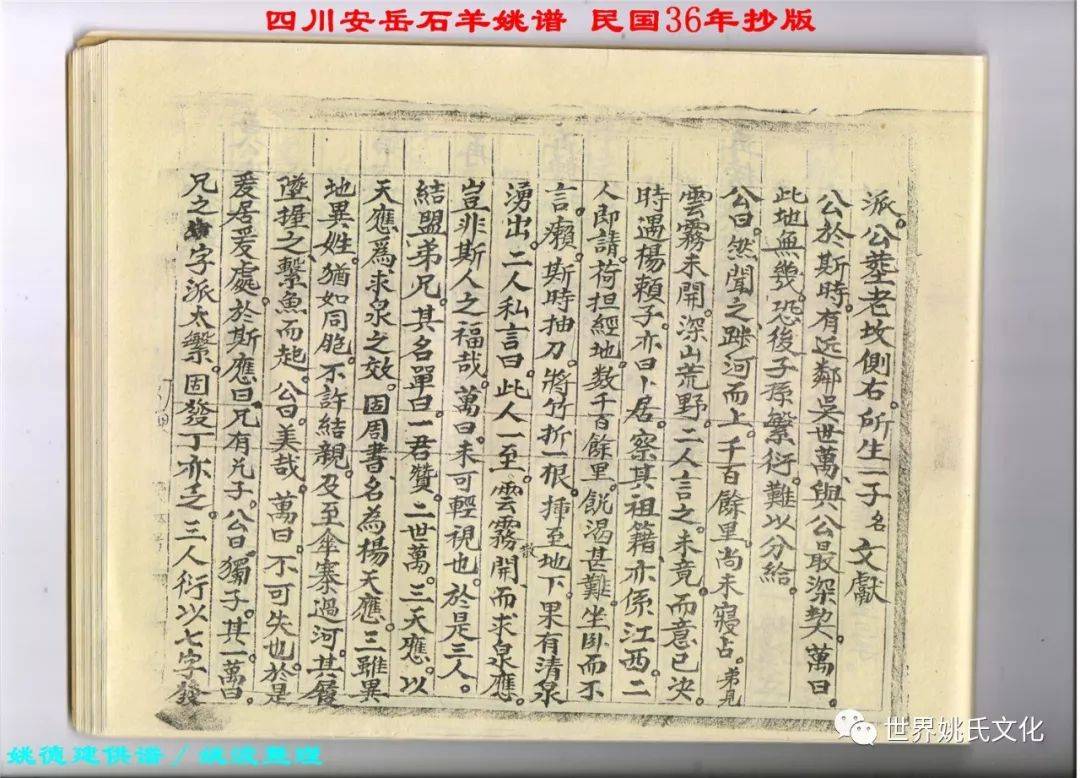 四川安岳石羊姚谱 民国36年抄版
派。公塟老坟側右。所生一子名文獻
公於斯時。有近鄰吳世萬與公最深契。萬曰。
此地無幾。恐後子孫繁衍難以分給。
公曰。然聞之跡河而上。千百餘里。尚未寢占。弟見
雲霧未開。深山荒野。二人言之。未竟。而意已決。
時遇楊賴子。亦曰卜居。察其祖籍。亦係江西。二
人即請。荷担經地。数千百餘里。飢渴甚難。坐卧而不
言。癩。斯時抽刀。將竹折一根。揷至地下。果有清泉
湧出。二人私言曰。此人一至。雲霧開散。而求泉應。
豈非斯人之福哉。萬曰。未可輕視也。於是三人。
結盟弟兄。其名單曰。一君贊。二世萬。三天應。以
天應為求泉之效。固周書名為楊天應。三雖異
地異姓。猶如同胞。不許結親。及至傘寨過河。其
墜捶之。繫魚而起。公曰。美哉。萬曰。不可失也。於是
爰居爰處。於斯應曰。兄有凢子。公曰。獨子。其一萬曰。
兄之字派太繁。固發丁亦乏。三人衍以七字發
姚德建供谱/姚波整理
世界姚氏文化